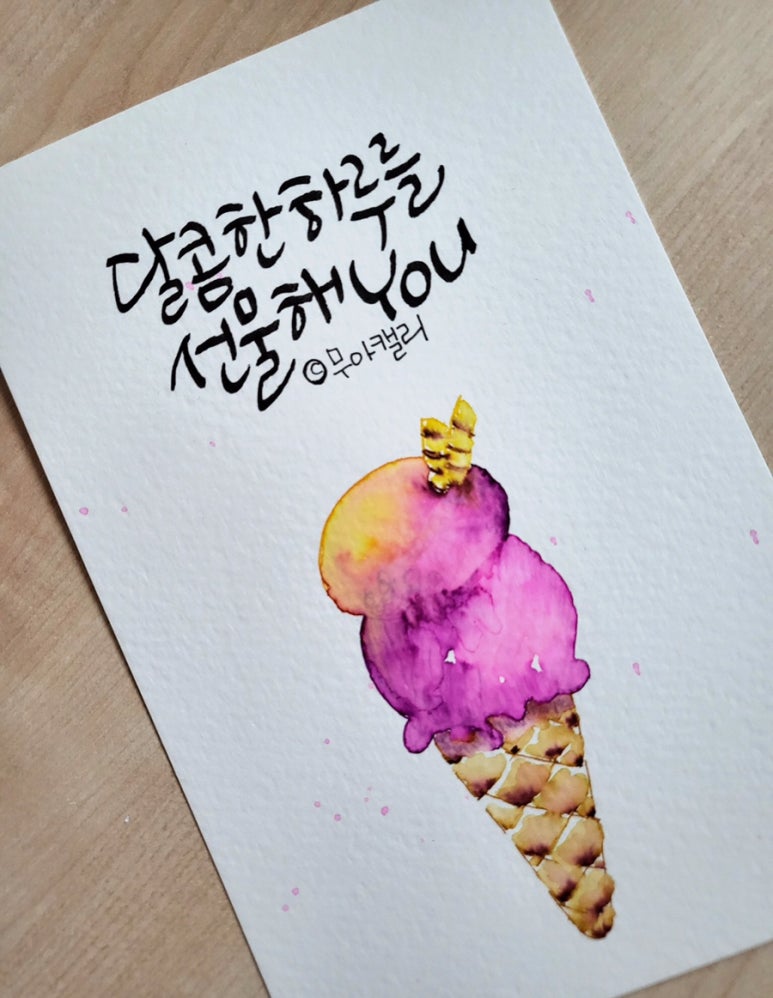 달콤한 하루를
선물해 You
©무아캘리